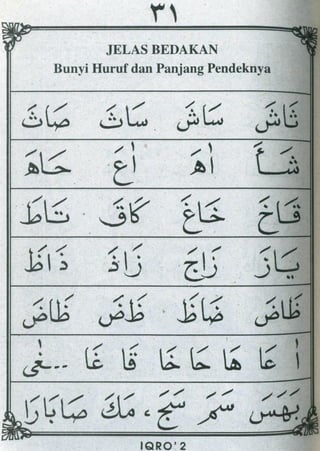 ٣١
JELAS BEDAKAN
Bunyi Huruf dan Panjang Pendeknya
ثَاشَ سَاشَ سَاثَ صَاثَ
أٰهَ أٰعَ حَاهَ
قَاخَ خَاغَ كَاقَ تَاطَ
يَازَ زَاجَ زَاذَ ذَاظَ
ظَاضَ ضَاظَ ظَضَ ظَاضَ
اٰ عَا هَا حَا خَا قَا غَا ...غٰى
بَهَسَ سَمَ سَجَ، مَكَ صَابَارَا
IQRO' 2